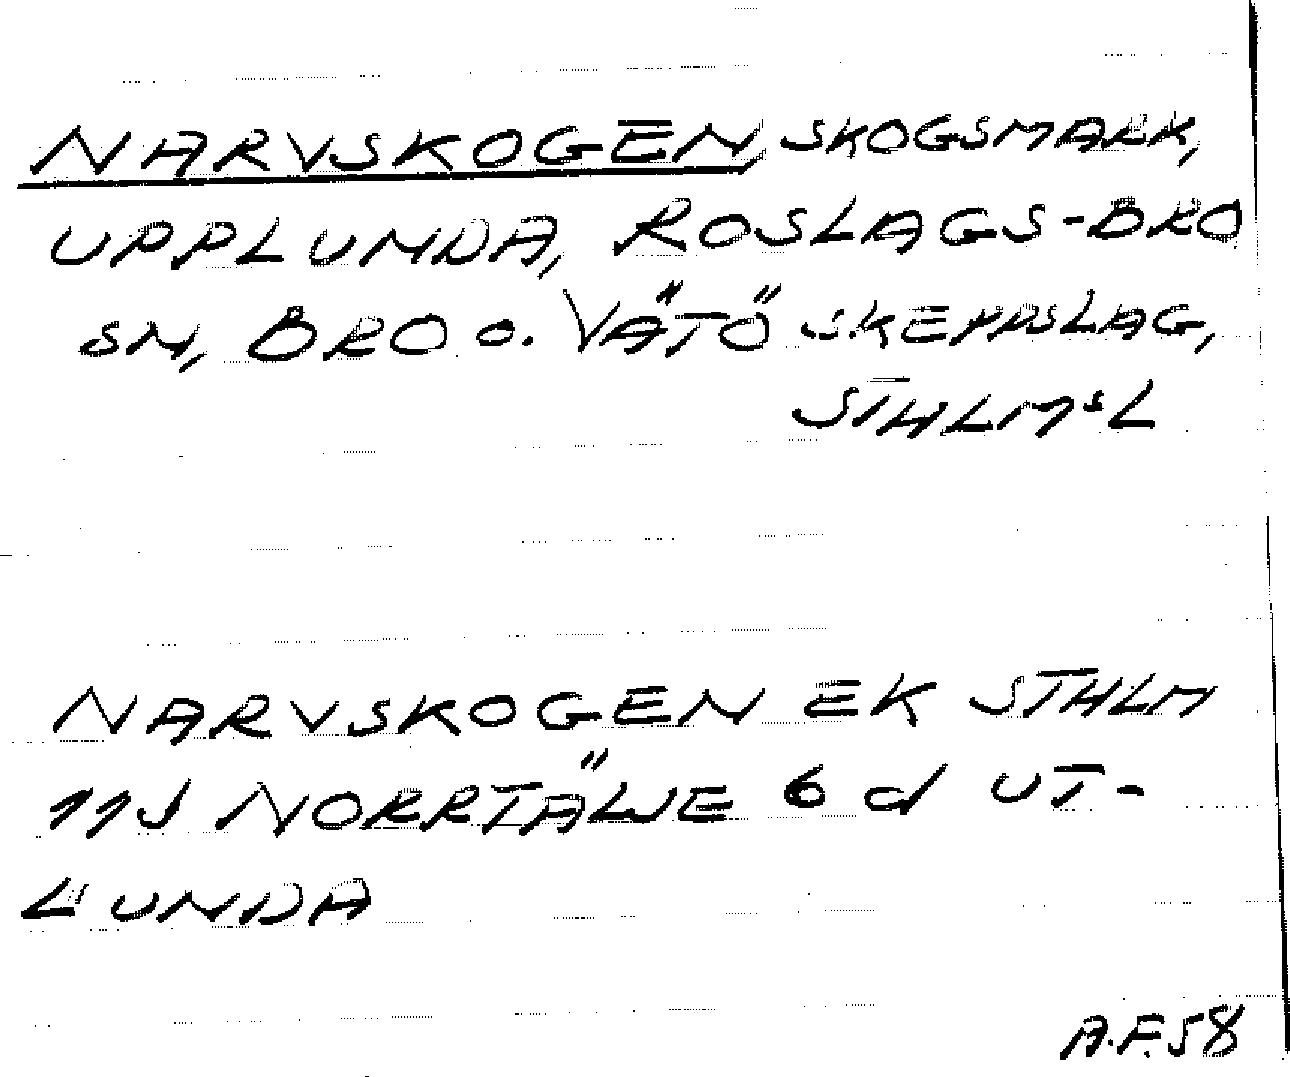 NARVSKOGEN, SKOGSMARK,
UPPLUNDA, ROSLAGS-BRO
SN, BRO O. VÄTÖ SKEPPSLAG,
STHLMSL
NARVSKOGEN EK STHLM
11J NORRTÄLJE 6 d UT-
LUNDA
A.F.58